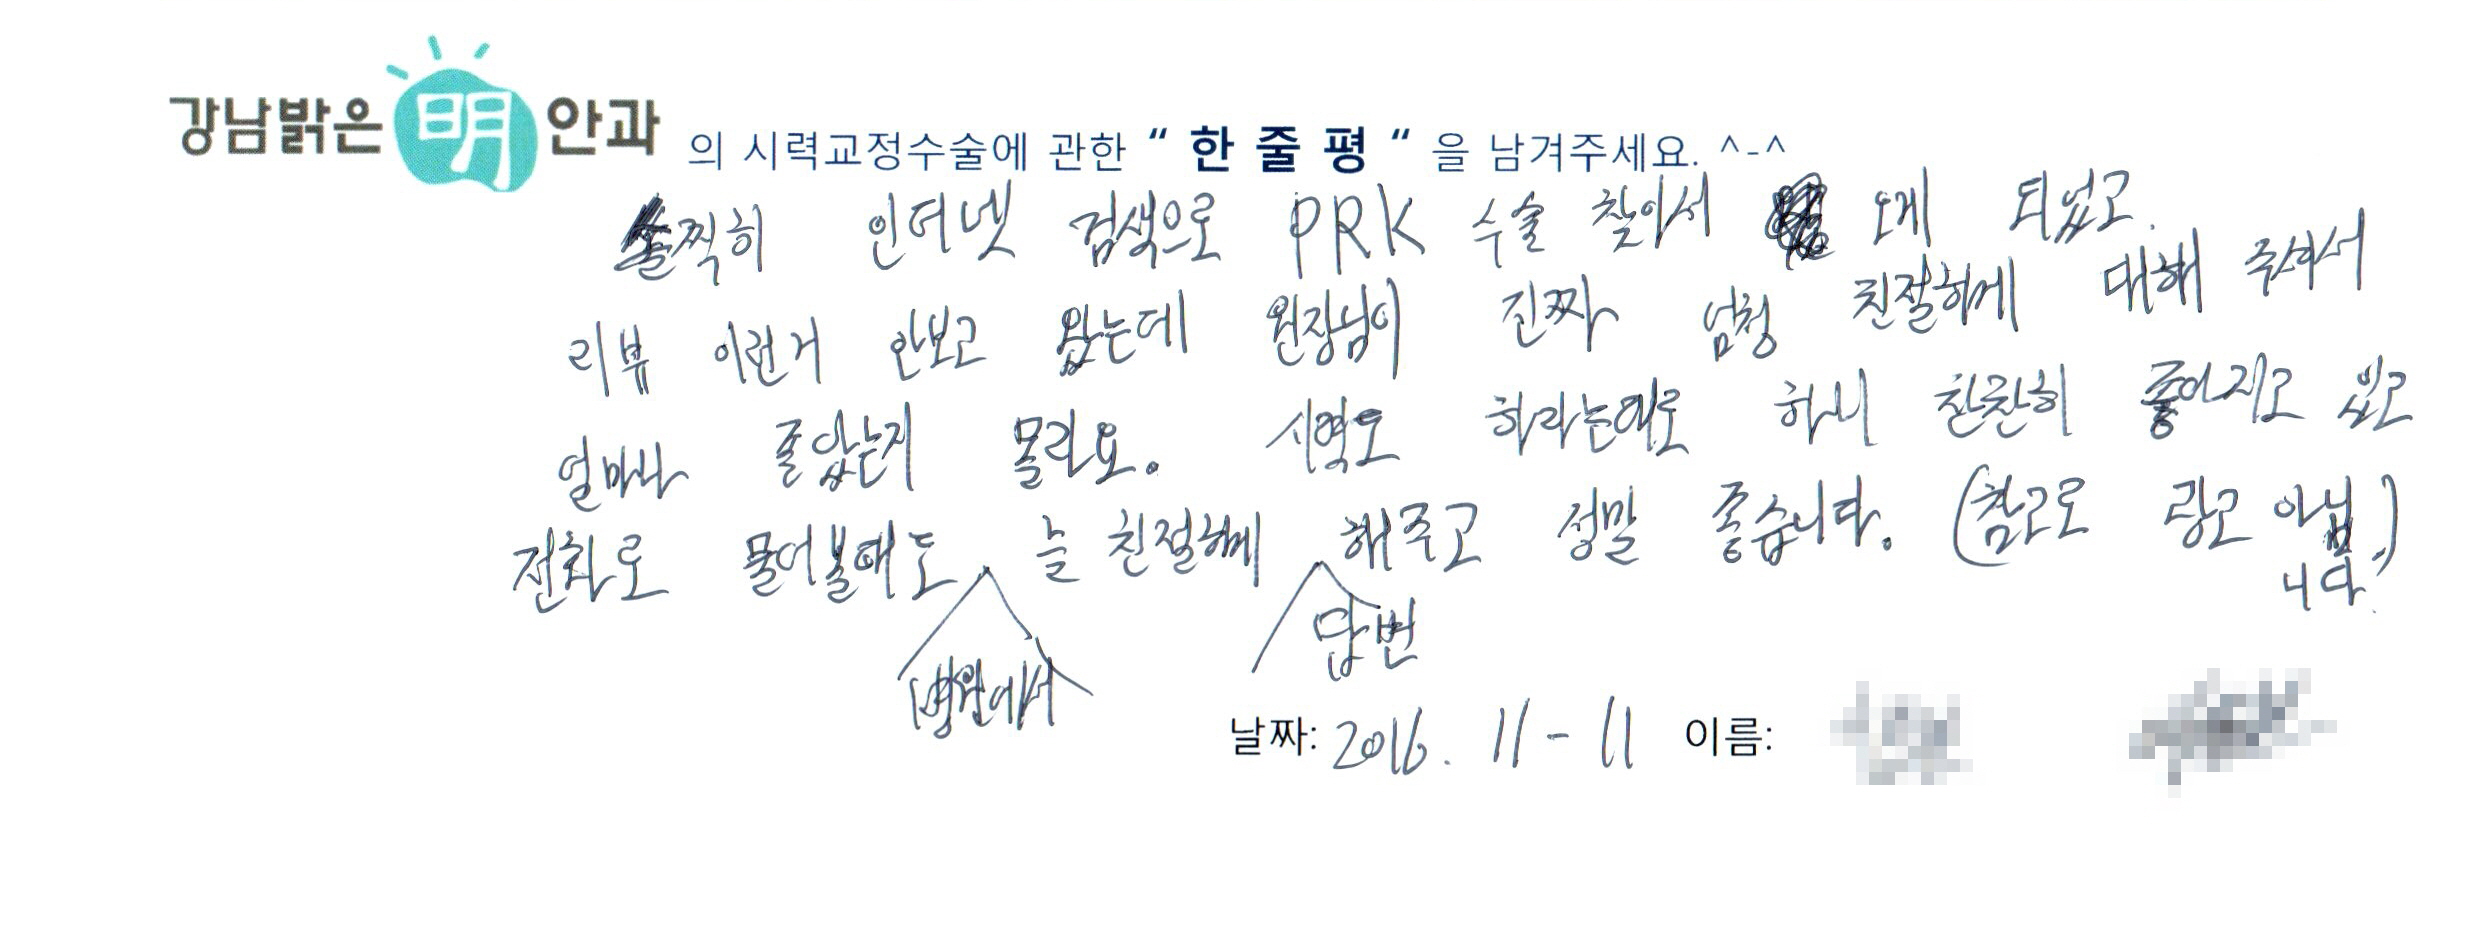 강남밝은 明 안과 의 시력교정수술에 관한 “ 한 줄 평 “ 을 남겨주세요. ^-^
솔찍히 인터넷 검색으로 PRK 수술 찾아서 오게 되었고.
리뷰 이런거 안보고 왔는데 원장님이 진짜 엄청 친절하게 대해 주셔서
얼마나 좋았는지 몰라요. 시력도 하라는데로 하니 찬찬히 좋아지고 있고
전화로 물어볼때도 늘 친절하게 해주고 정말 좋습니다. (참고로 광고 아닙
니다.)
답변
병원에서
날짜: 2016. 11-11 이름: